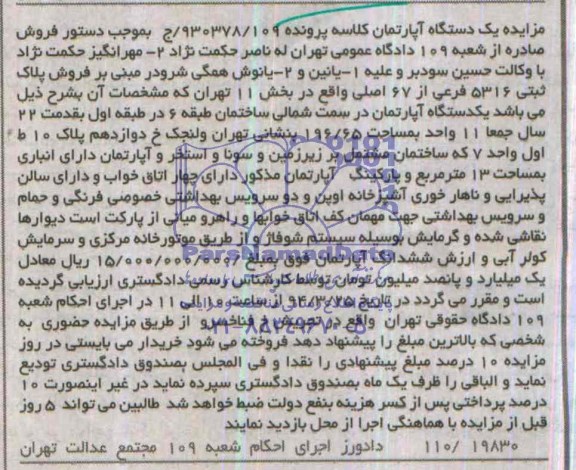 مزایده یک دستگاه آپارتمان کلاسه پرونده ۹۳۰۳۷۸/۱۰۹/ج بموجب دستور فروش
صادره از شعبه ۱۰۹ دادگاه عمومی تهران له ناصر حکمت نژاد ۲- مهرانگیز حکمت نژاد
با وکالت حسین سودبر و علیه ۱-یانین و ۲-یانوش همگی شرودر مبنی بر فروش پلاک
ثبتی ۵۳۱۶ فرعی از ۶۷ اصلی واقع در بخش ۱۱ تهران که مشخصات آن بشرح ذیل
می باشد یکدستگاه آپارتمان در سمت شمالی ساختمان طبقه ۶ در طبقه اول بقدمت ۲۲
سال جمعا ۱۱ واحد بمساحت ۱۹۶/۶۵ بنشانی تهران ولنجک خ دوازدهم پلاک ۱۰ ط
اول واحد ۷ که ساختمان مشتمل بر زیرزمین و سونا و استخر و آپارتمان دارای انباری
بمساحت ۱۳ مترمربع و پارکینگ آپارتمان مذکور دارای چهار اتاق خواب و دارای سالن
پذیرایی و ناهار خوری آشپزخانه اوپن و دو سرویس بهداشتی خصوصی فرنگی و حمام
و سرویس بهداشتی جهت مهمان کف اتاق خوابها و راهرو میانی از پارکت است دیوارها
نقاشی شده و گرمایش بوسیله سیستم شوفاژ و از طریق موتورخانه مرکزی و سرمایش
کولر آبی و ارزش ششدانگ آپارتمان فوق بمبلغ ۱۵/۰۰۰/۰۰۰/۰۰۰ ریال معادل
یک میلیارد و پانصد میلیون تومان توسط کارشناس رسمی دادگستری ارزیابی گردیده
است و مقرر می گردد در تاریخ ۹۴/۳/۲۵ از ساعت ۱۰ الی ۱۱ در اجرای احکام شعبه
۱۰۹ دادگاه حقوقی تهران واقع در از طریق مزایده حضوری به
شخصی که بالاترین مبلغ را پیشنهاد دهد فروخته می شود خریدار می بایستی در روز
مزایده ۱۰ درصد مبلغ پیشنهادی را نقدا و فی المجلس بصندوق دادگستری تودیع
نماید و الباقی را ظرف یک ماه بصندوق دادگستری سپرده نماید در غیر اینصورت ۱۰
درصد پرداختی پس از کسر هزینه بنفع دولت ضبط خواهد شد طالبین می تواند ۵ روز
قبل از مزایده با هماهنگی اجرا از محل بازدید نمایند
۱۹۸۳۰ /۱۱۰ دادورز اجرای احکام شعبه ۱۰۹ مجتمع عدالت تهران
ParsNamadData
۰۲۱-۸۸۳۴۹۶۷۰-۵